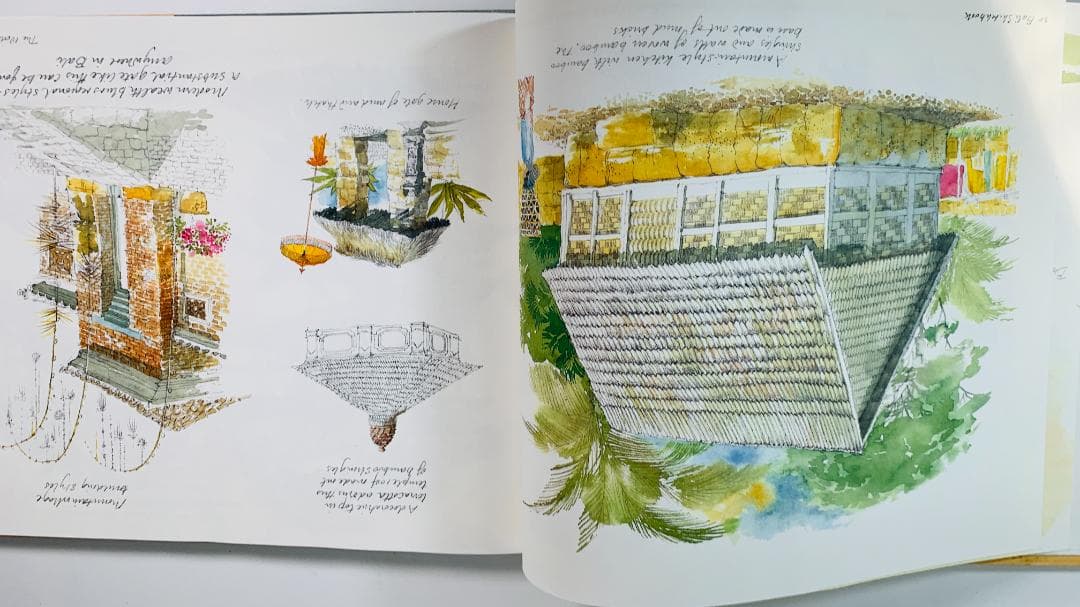 A mountain-style kitchen with bamboo
shingles and walls of woven bamboo. The
base is made out of mud bricks
Bali Sketchbook
A decorative top in
terracotta adorns this
temple roof made out
of bamboo shingles
Mountain village
building styles
House gate of mud and thatch
Modern wealth blurs regional styles-
A substantial gate like this can be
anywhere in Bali
The